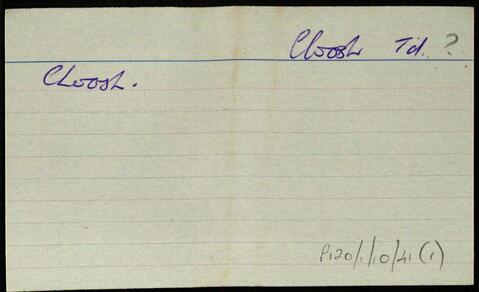 Cloosh Td. ?
Cloosh.
P120/1/10/41(1)